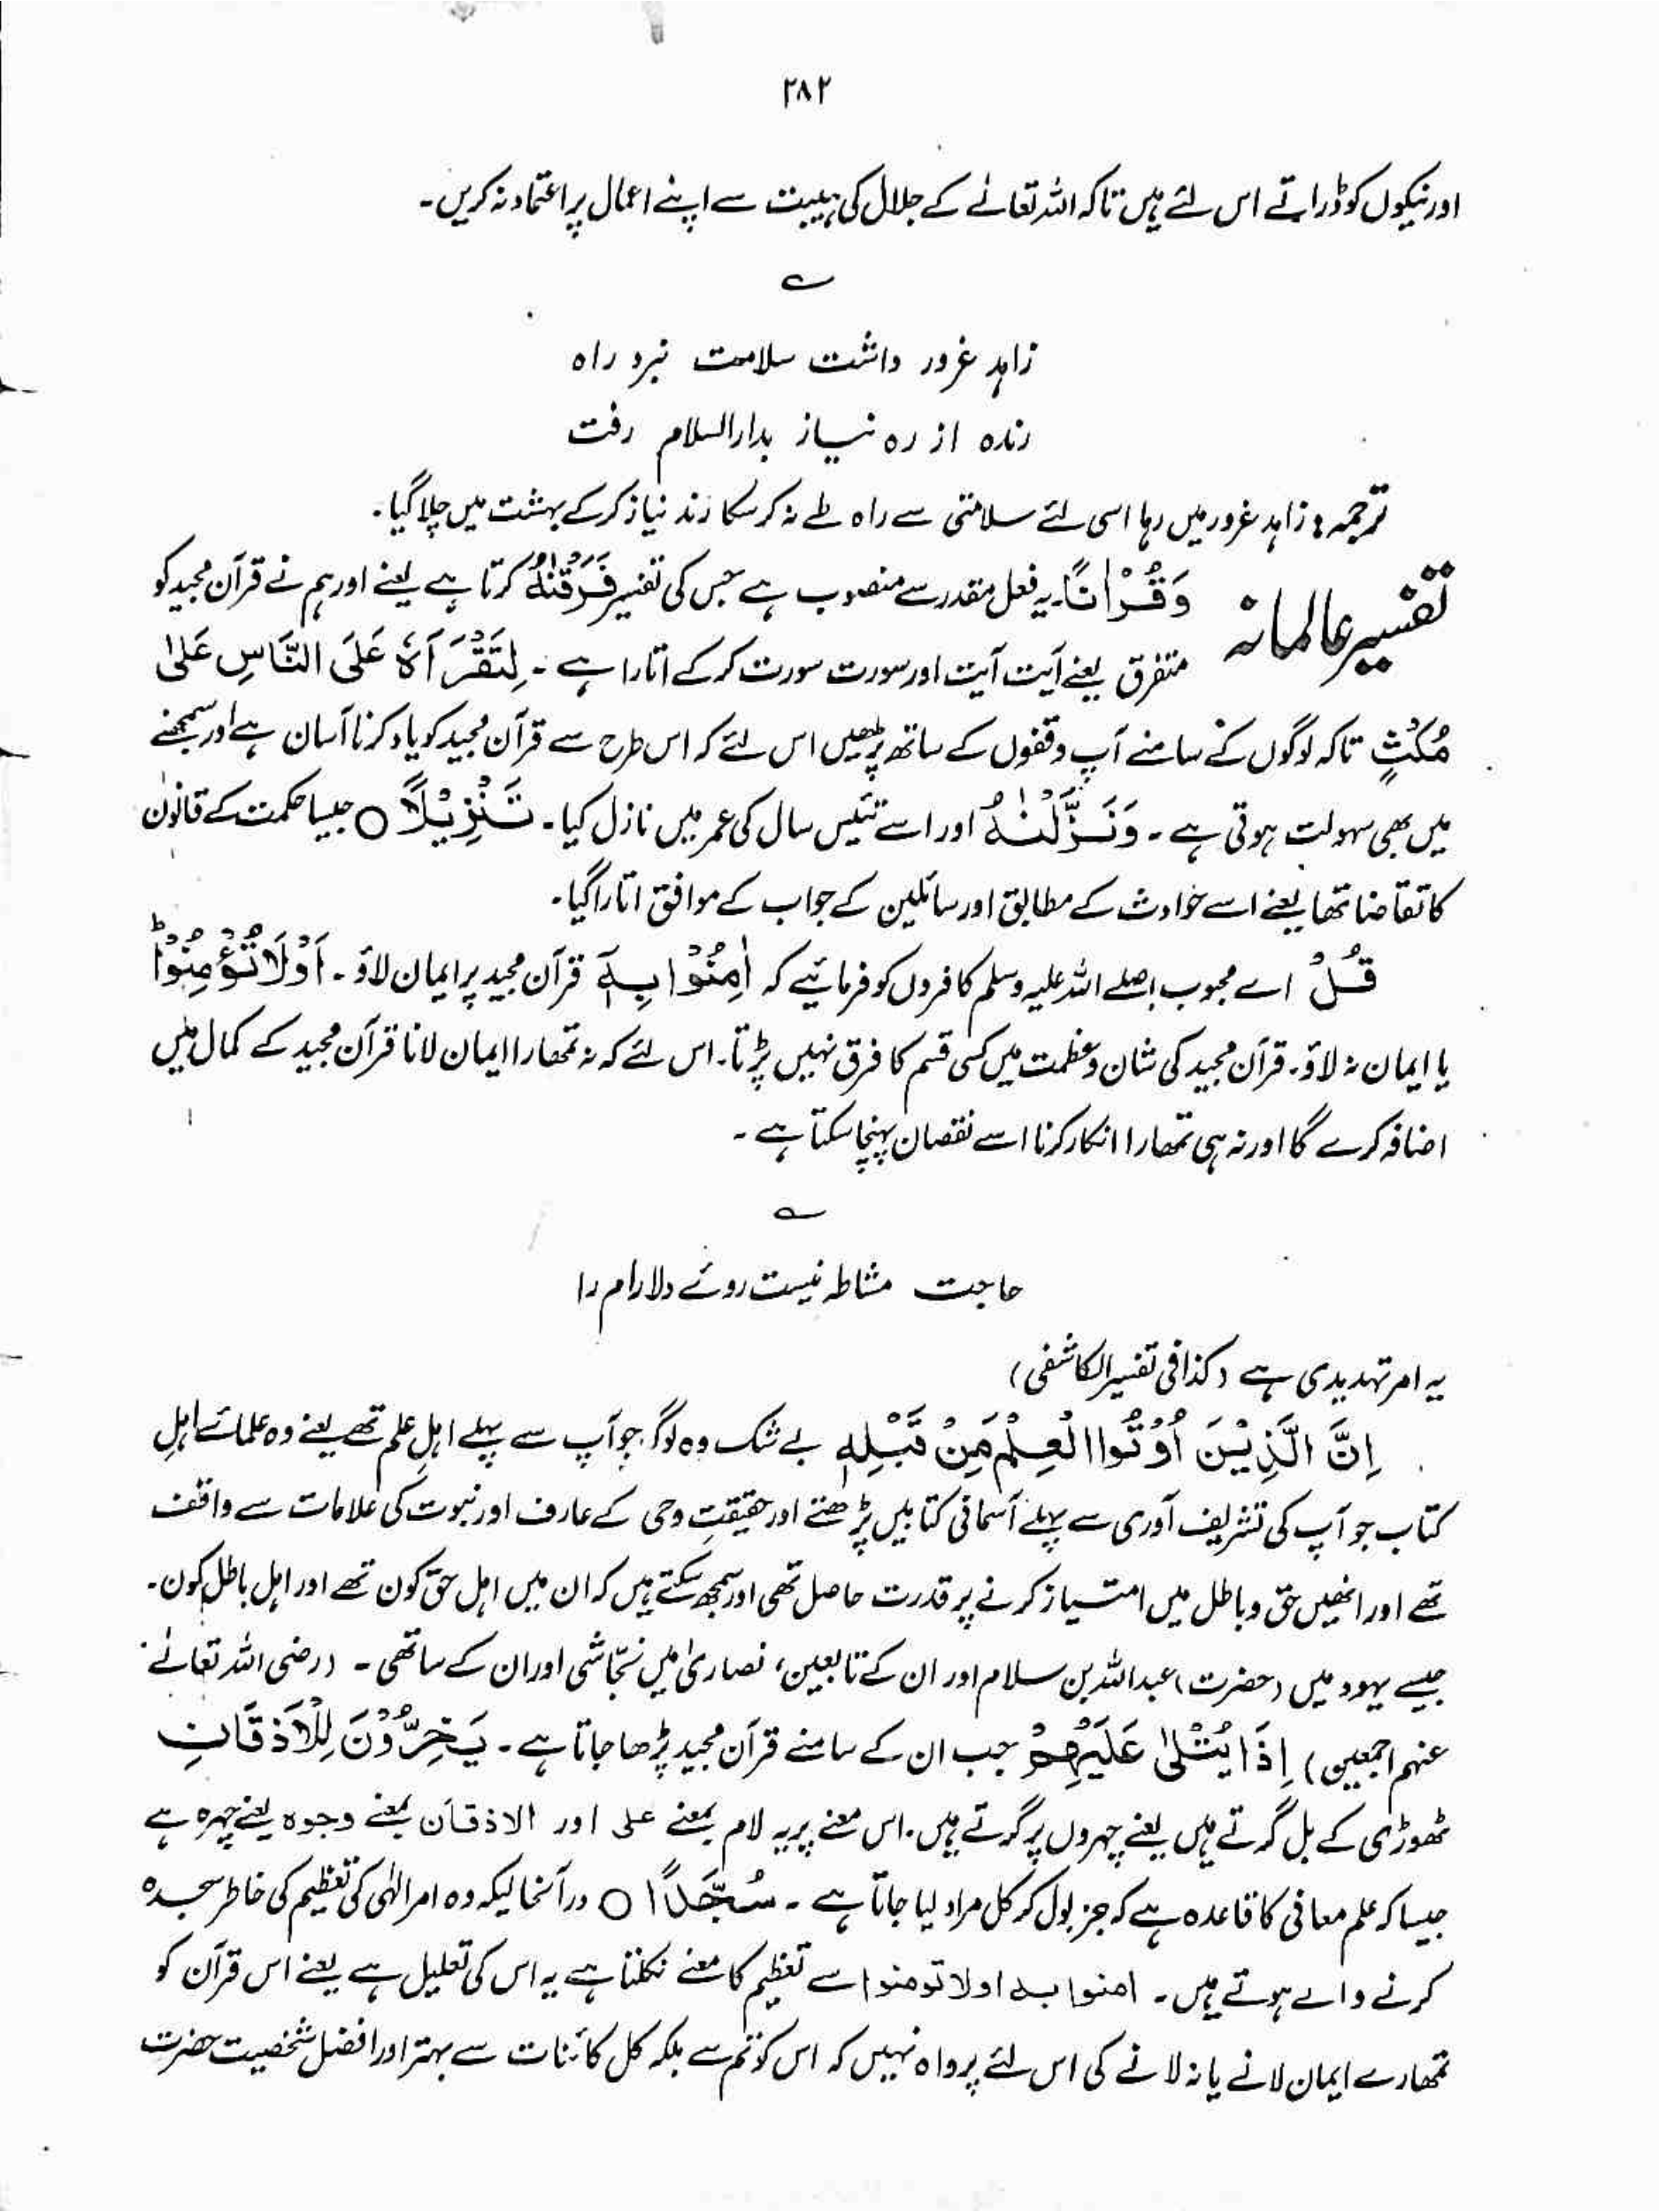 ۲۸۲
اور نیکوں کو ڈراتے اس لئے ہیں تاکہ اللہ تعالٰے کے جلال کی ہیبت سے اپنے اعمال پر اعتماد نہ کریں۔
؎
زاہد غرور داشت سلامت نبرد راہ
رندہ از رہ نیاز بدارالسلام رفت
ترجمہ: زاہد غرور میں رہا اسی لئے سلامتی سے راہ طے نہ کر سکا رند نیاز کر کے بہشت میں چلا گیا۔
تفسیر عالمانہ وَقُرْاٰنًا۔ یہ فعل مقدر سے منصوب ہے جس کی تفسیر فَرَقْنٰهُ کرتا ہے یعنے اور ہم نے قرآن مجید کو
متفرق یعنے آیت آیت اور سورت سورت کر کے اتارا ہے ۔ لِتَقْرَاَهٗ عَلَى النَّاسِ عَلٰى
مُكْثٍ تاکہ لوگوں کے سامنے آپ وقفوں کے ساتھ پڑھیں اس لئے کہ اس طرح سے قرآن مجید کو یاد کرنا آسان ہے اور سمجھنے
میں بھی سہولت ہوتی ہے ۔ وَنَزَّلْنٰهُ اور اسے تئیس سال کی عمر میں نازل کیا۔ تَنْزِيْلًا ○ جیسا حکمت کے قانون
کا تقاضا تھا یعنے اسے حوادث کے مطابق اور سائلین کے جواب کے موافق اتارا گیا۔
قُلْ اے محبوب صلے اللہ علیہ وسلم کافروں کو فرمائیے کہ اٰمِنُوْا بِهٖٓ قرآن مجید پر ایمان لاؤ ۔ اَوْلَا تُؤْمِنُوْا ؕ
یا ایمان نہ لاؤ۔ قرآن مجید کی شان و عظمت میں کسی قسم کا فرق نہیں پڑتا۔ اس لئے کہ نہ تمھارا ایمان لانا قرآن مجید کے کمال میں
اضافہ کرے گا اور نہ ہی تمھارا انکار کرنا اسے نقصان پہنچا سکتا ہے ۔
؎
حاجت مشاطہ نیست روئے دلارام را
یہ امر تہدیدی ہے (کذا فی تفسیر الکاشفی)
اِنَّ الَّذِيْنَ اُوْتُوا الْعِلْمَ مِنْ قَبْلِهٖ بے شک وہ لوگ جو آپ سے پہلے اہلِ علم تھے یعنے وہ علمائے اہلِ
کتاب جو آپ کی تشریف آوری سے پہلے آسمانی کتابیں پڑھتے اور حقیقتِ وحی کے عارف اور نبوت کی علامات سے واقف
تھے اور انھیں حق و باطل میں امتیاز کرنے پر قدرت حاصل تھی اور سمجھ سکتے ہیں کہ ان میں اہل حق کون تھے اور اہل باطل کون۔
جیسے یہود میں (حضرت) عبداللہ بن سلام اور ان کے تابعین، نصاریٰ میں نجّاشی اور ان کے ساتھی ۔ (رضی اللہ تعالٰے
عنہم اجمعین) اِذَا يُتْلٰى عَلَيْهِمْ جب ان کے سامنے قرآن مجید پڑھا جاتا ہے ۔ يَخِرُّوْنَ لِلْاَذْقَانِ
ٹھوڑی کے بل گرتے ہیں یعنے چہروں پر گرتے ہیں۔ اس معنے پر یہ لام بمعنے علی اور الاذقان بمعنے وجوہ یعنے چہرہ ہے
جیسا کہ علم معانی کا قاعدہ ہے کہ جز بول کر کل مراد لیا جاتا ہے ۔ سُجَّدًا ○ درآنحالیکہ وہ امر الٰہی کی تعظیم کی خاطر سجدہ
کرنے والے ہوتے ہیں ۔ امنوا بہ اولا تومنوا سے تعظیم کا معنے نکلتا ہے یہ اس کی تعلیل ہے یعنے اس قرآن کو
تمھارے ایمان لانے یا نہ لانے کی اس لئے پرواہ نہیں کہ اس کو تم سے بلکہ کل کائنات سے بہتر اور افضل شخصیت حضرت